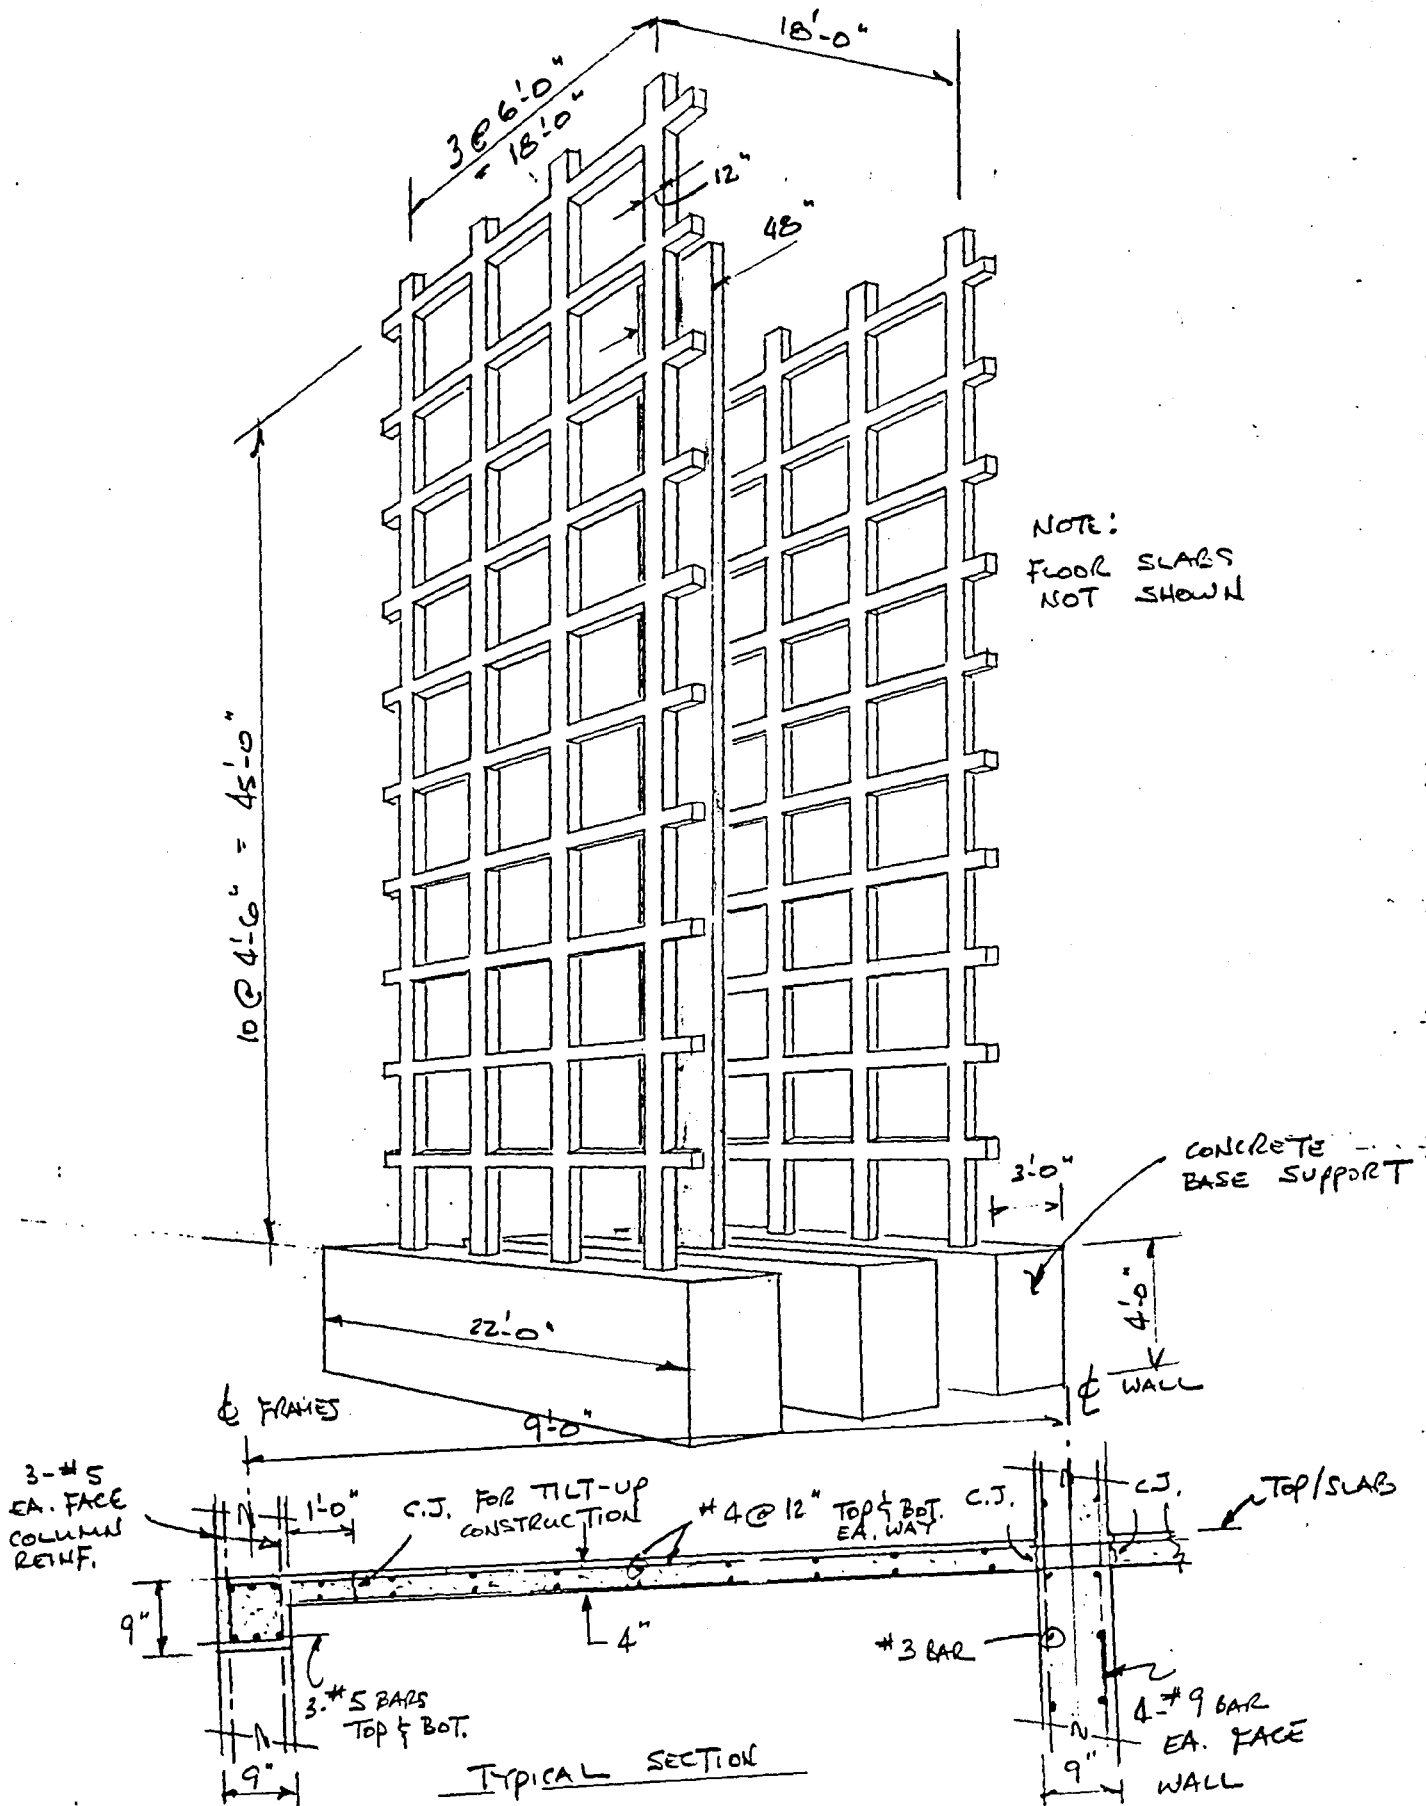 18'-0"
3 @ 6'-0"
= 18'-0"
12"
48"
NOTE:
FLOOR SLABS
NOT SHOWN
10 @ 4'-6" = 45'-0"
CONCRETE
BASE SUPPORT
3'-0"
4'-0"
22'-0"
℄ FRAMES
9'-0"
℄ WALL
3-#5
EA. FACE
COLUMN
REINF.
1'-0"
C.J. FOR TILT-UP
CONSTRUCTION
#4 @ 12" TOP & BOT.
EA. WAY
C.J.
C.J.
TOP/SLAB
9"
4"
#3 BAR
3-#5 BARS
TOP & BOT.
4-#9 BAR
EA. FACE
WALL
9"
9"
TYPICAL SECTION